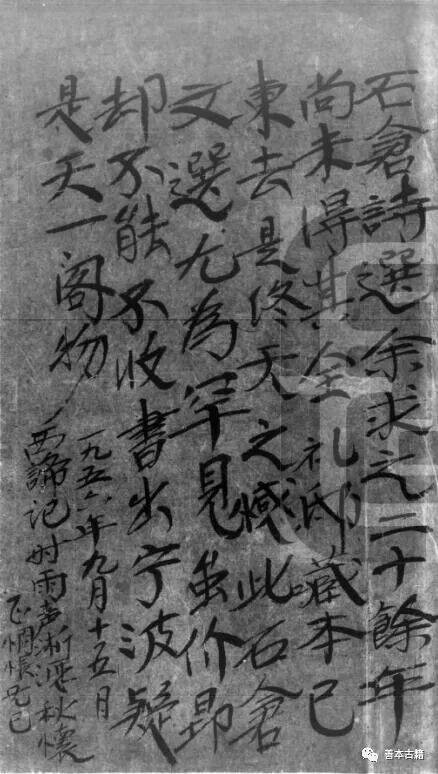 石倉詩選余求之二十餘年
尚未得其全礼邸藏本已
東去是終天之憾此石倉
文選尤為罕見虽价昂
却不能不收書出宁波疑
是天一阁物
一九五六年九月十五日
西諦记时雨声淅沥秋懷
正惆悵不已
善本古籍